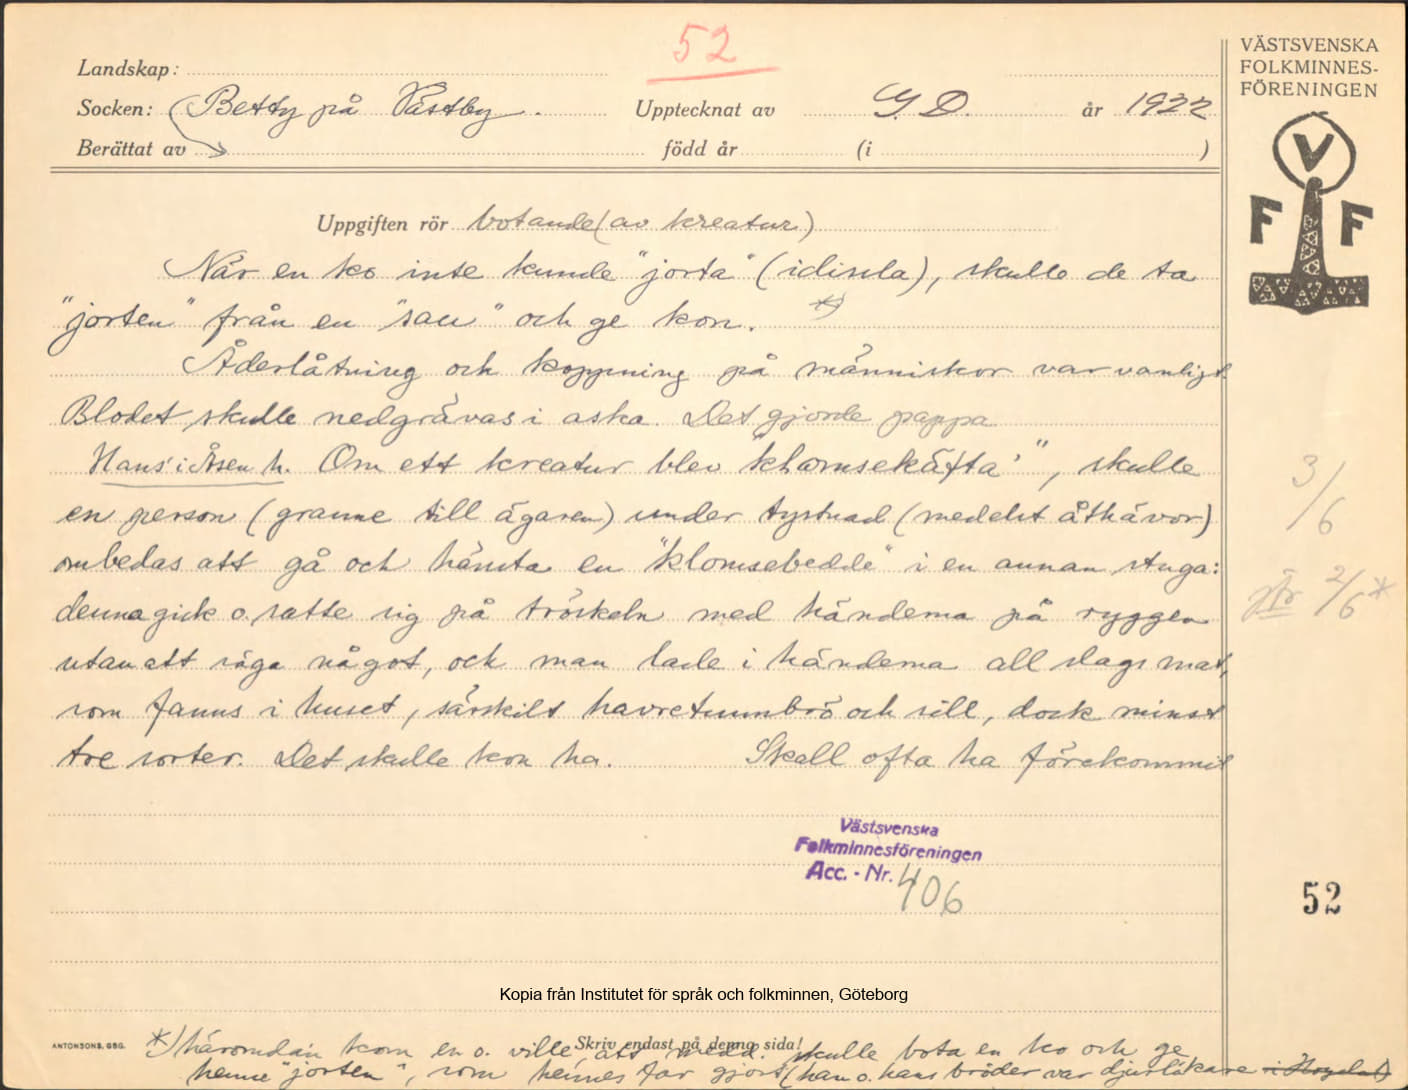 52
VÄSTSVENSKA
FOLKMINNES-
FÖRENINGEN
Landskap:
Socken: (Betty på Västby. Upptecknat av G. D. år 1922
Berättat av född år (i )
V
F F
Uppgiften rör botande (av kreatur)
När en ko inte kunde "jorta" (idissla), skulle de ta
"jorten" från en "sau" och ge kon. *)
Åderlåtning och koppning på människor var vanligt.
Blodet skulle nedgrävas i aska. Det gjorde pappa
Hans i Åsen h. Om ett kreatur blev "klomsekäfta'", skulle
en person (granne till ägaren) under tystnad (medelst åthävor)
ombedas att gå och hämta en "klomsebedde" i en annan stuga:
denna gick o. satte sig på tröskeln med händerna på ryggen
utan att säga något, och man lade i händerna all slags mat,
som fanns i huset, särskilt havretunnbrö och sill, dock minst
tre sorter. Det skulle kon ha. Skall ofta ha förekommit
3/6
2/6 *
Västsvenska
Folkminnesföreningen
Acc. - Nr. 406
52
Kopia från Institutet för språk och folkminnen, Göteborg
ANTONSONS, GBG.
Skriv endast på denna sida!
*) häromdan kom en o. ville, att medd. skulle bota en ko och ge
henne "jorten", som hennes far gjort (han o. hans bröder var djurläkare